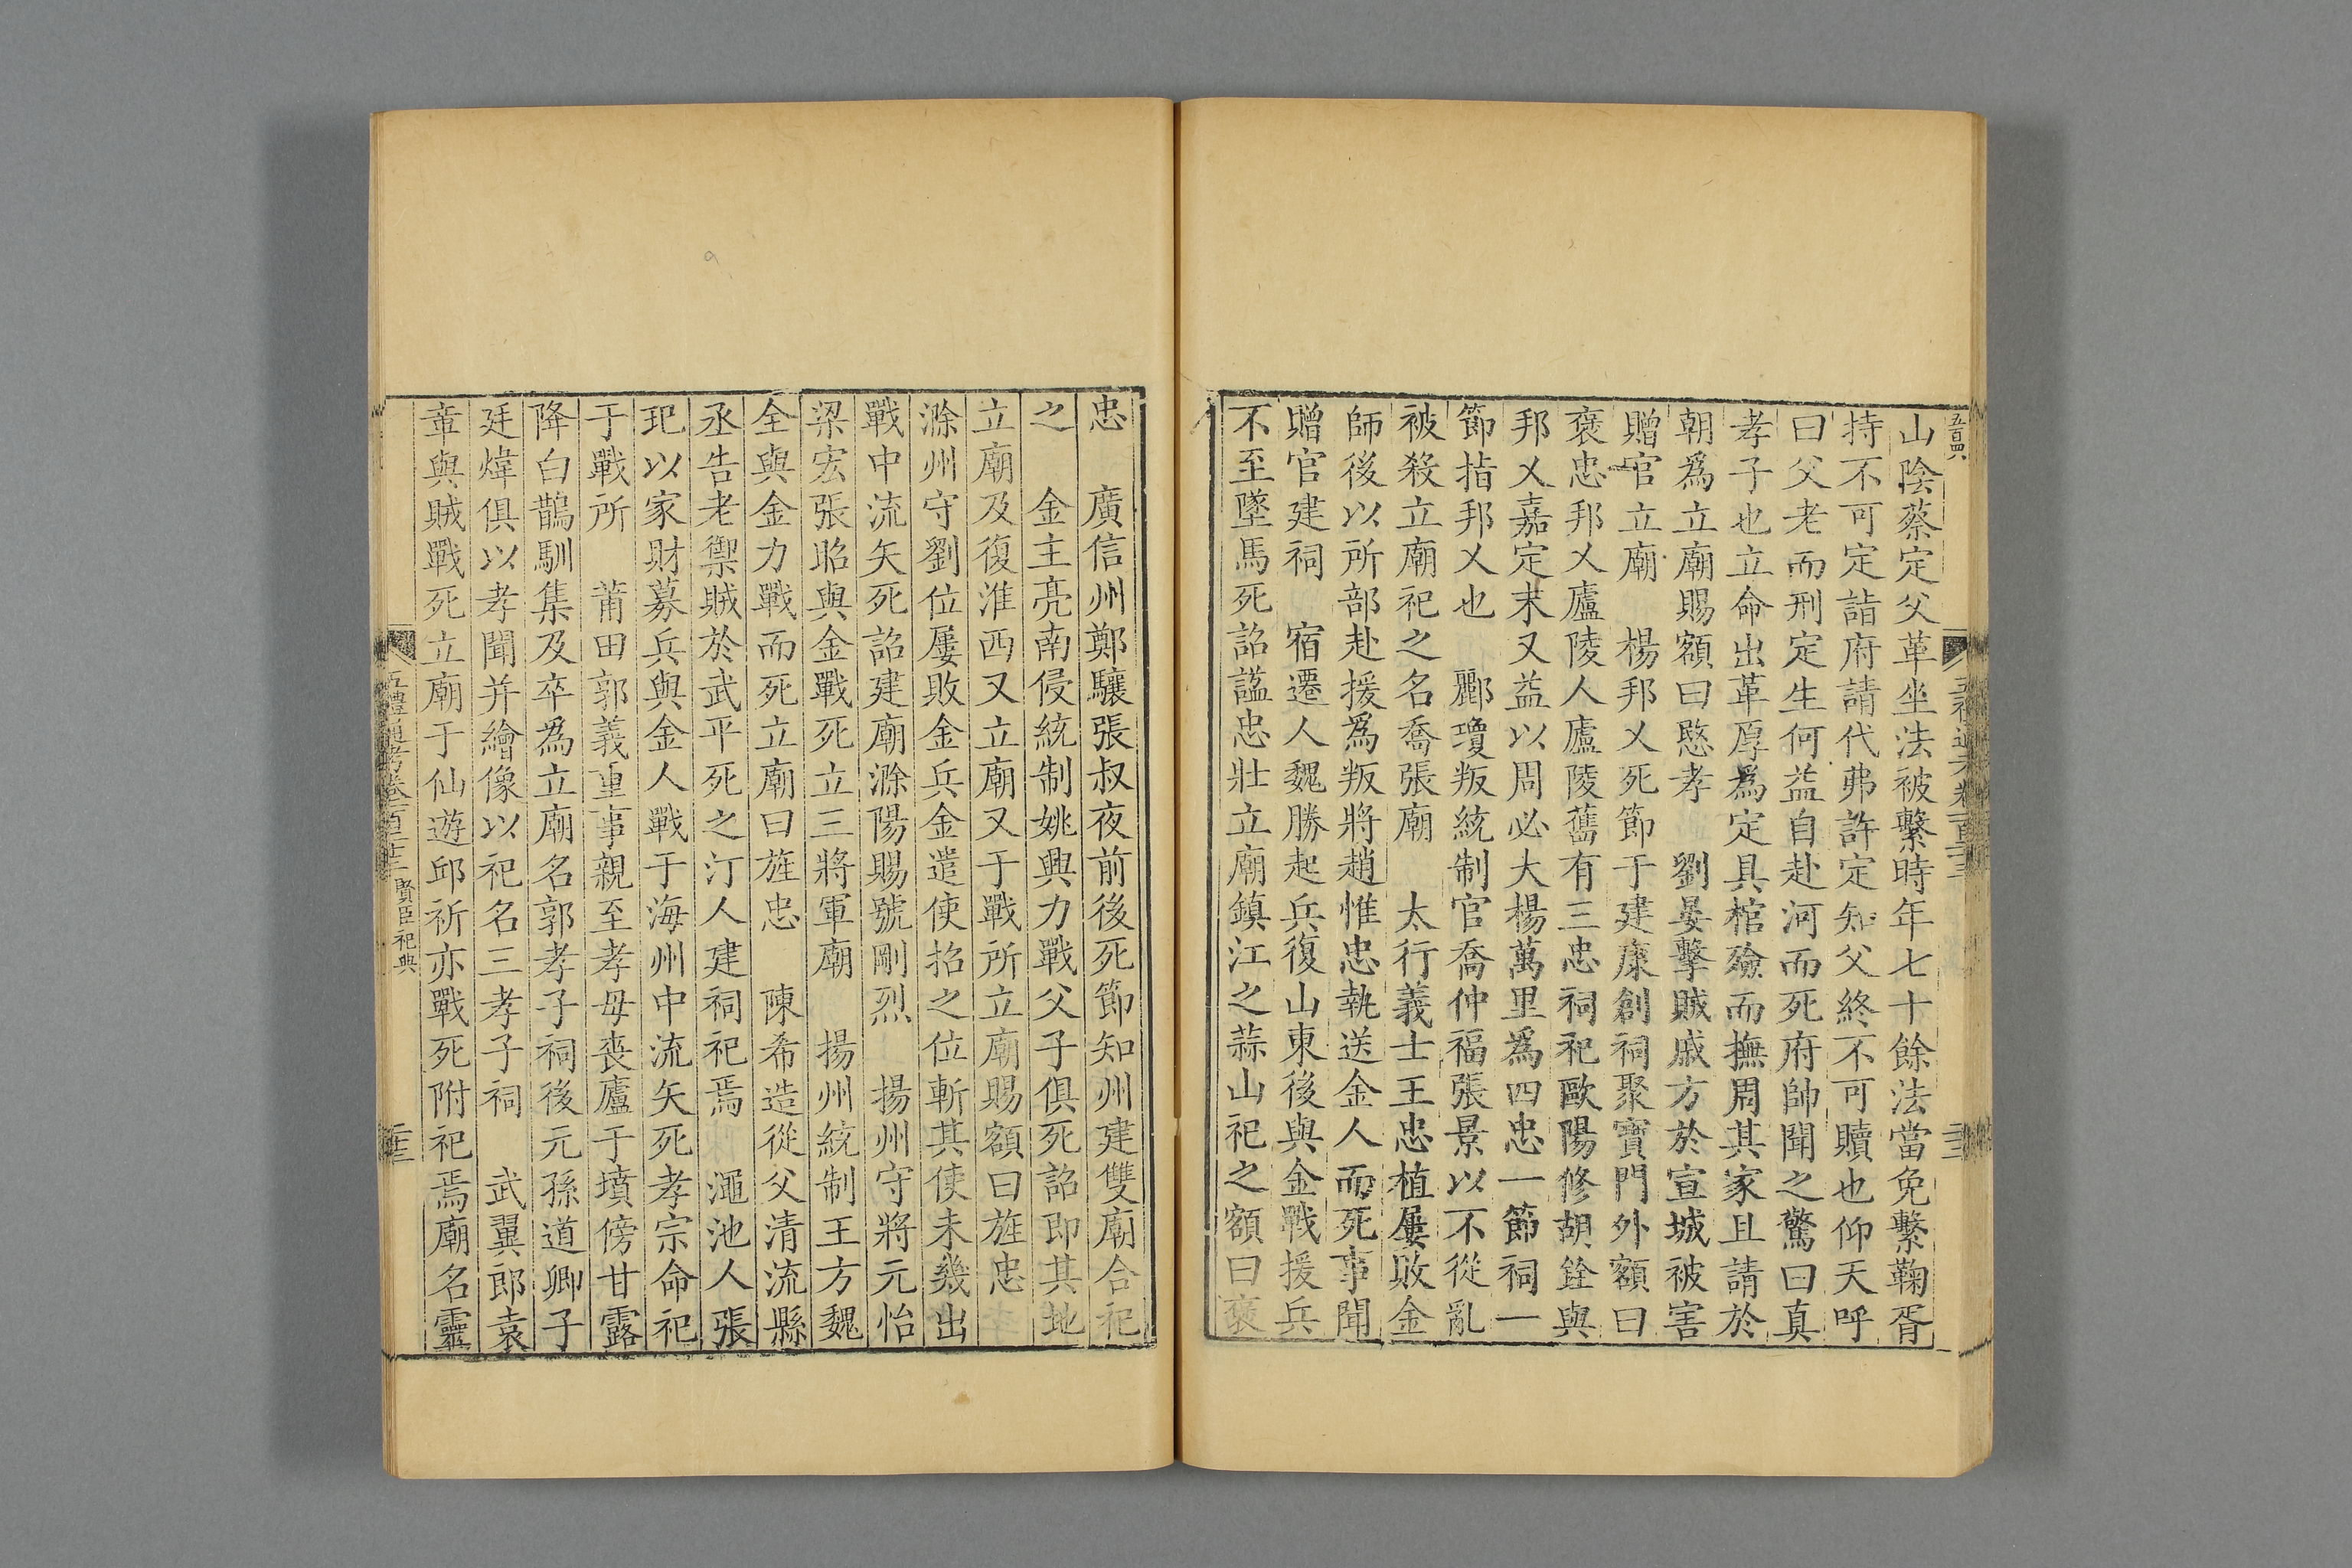 五百四六
山陰蔡定父革坐法被繫時年七十餘法當免繫鞠胥
持不可定詣府請代弗許定知父終不可贖也仰天呼
曰父老而刑定生何益自赴河而死府帥聞之驚曰真
孝子也立命出革厚爲定具棺殮而撫周其家且請於
朝爲立廟賜額曰愍孝　劉晏擊賊戚方於宣城被害
贈官立廟　楊邦乂死節于建康創祠聚寶門外額曰
褒忠邦乂廬陵人廬陵舊有三忠祠祀歐陽修胡銓與
邦乂嘉定末又益以周必大楊萬里爲四忠一節祠一
節指邦乂也　酈瓊叛統制官喬仲福張景以不從亂
被殺立廟祀之名喬張廟　太行義士王忠植屢敗金
師後以所部赴援爲叛將趙惟忠執送金人而死事聞
贈官建祠　宿遷人魏勝起兵復山東後與金戰援兵
不至墜馬死詔諡忠壯立廟鎮江之蒜山祀之額曰褒
忠　廣信州鄭驤張叔夜前後死節知州建雙廟合祀
之　金主亮南侵統制姚興力戰父子俱死詔即其地
立廟及復淮西又立廟又于戰所立廟賜額曰旌忠
滁州守劉位屢敗金兵金遣使招之位斬其使未幾出
戰中流矢死詔建廟滁陽賜號剛烈　揚州守將元怡
梁宏張昭與金戰死立三將軍廟　揚州統制王方魏
全與金力戰而死立廟曰旌忠　陳希造從父清流縣
丞告老禦賊於武平死之汀人建祠祀焉　澠池人張
玘以家財募兵與金人戰于海州中流矢死孝宗命祀
于戰所　莆田郭義重事親至孝母喪廬于墳傍甘露
降白鵲馴集及卒爲立廟名郭孝子祠後元孫道卿子
廷煒俱以孝聞并繪像以祀名三孝子祠　武翼郎袁
章與賊戰死立廟于仙遊邱祈亦戰死附祀焉廟名靈
五禮通考卷一百二十三　賢臣祀典